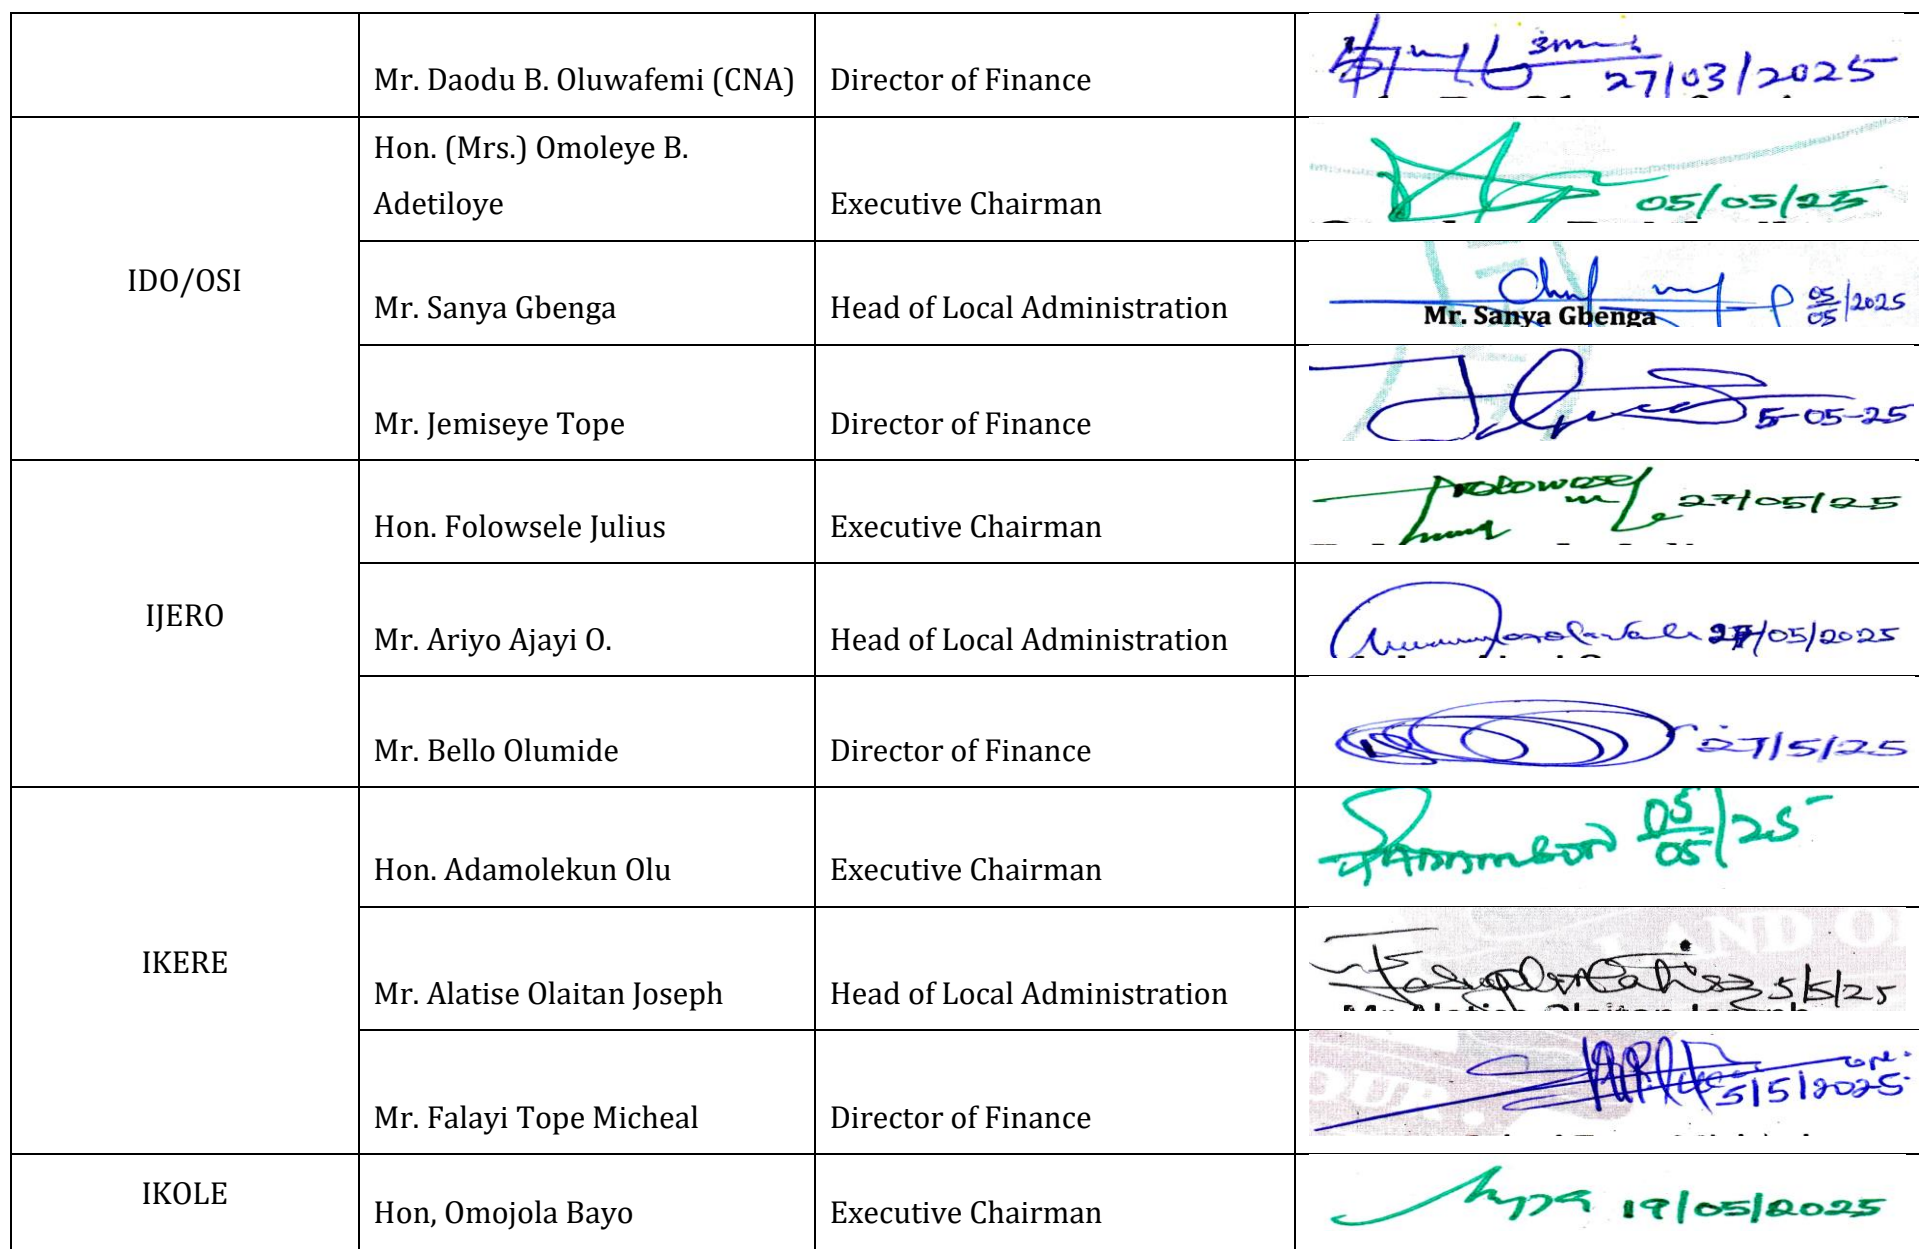 Mr. Daodu B. Oluwafemi (CNA) Director of Finance 27/03/2025
Hon. (Mrs.) Omoleye B.
Adetiloye Executive Chairman 05/05/25
IDO/OSI
Mr. Sanya Gbenga Head of Local Administration 05/05/2025
Mr. Sanya Gbenga
Mr. Jemiseye Tope Director of Finance 5-05-25
Hon. Folowsele Julius Executive Chairman 27/05/25
IJERO
Mr. Ariyo Ajayi O. Head of Local Administration 27/05/2025
Mr. Bello Olumide Director of Finance 27/5/25
Hon. Adamolekun Olu Executive Chairman 05/05/25
IKERE
LAND O
Mr. Alatise Olaitan Joseph Head of Local Administration 5/5/25
Mr. Falayi Tope Micheal Director of Finance 5/5/2025
IKOLE
Hon, Omojola Bayo Executive Chairman 19/05/2025